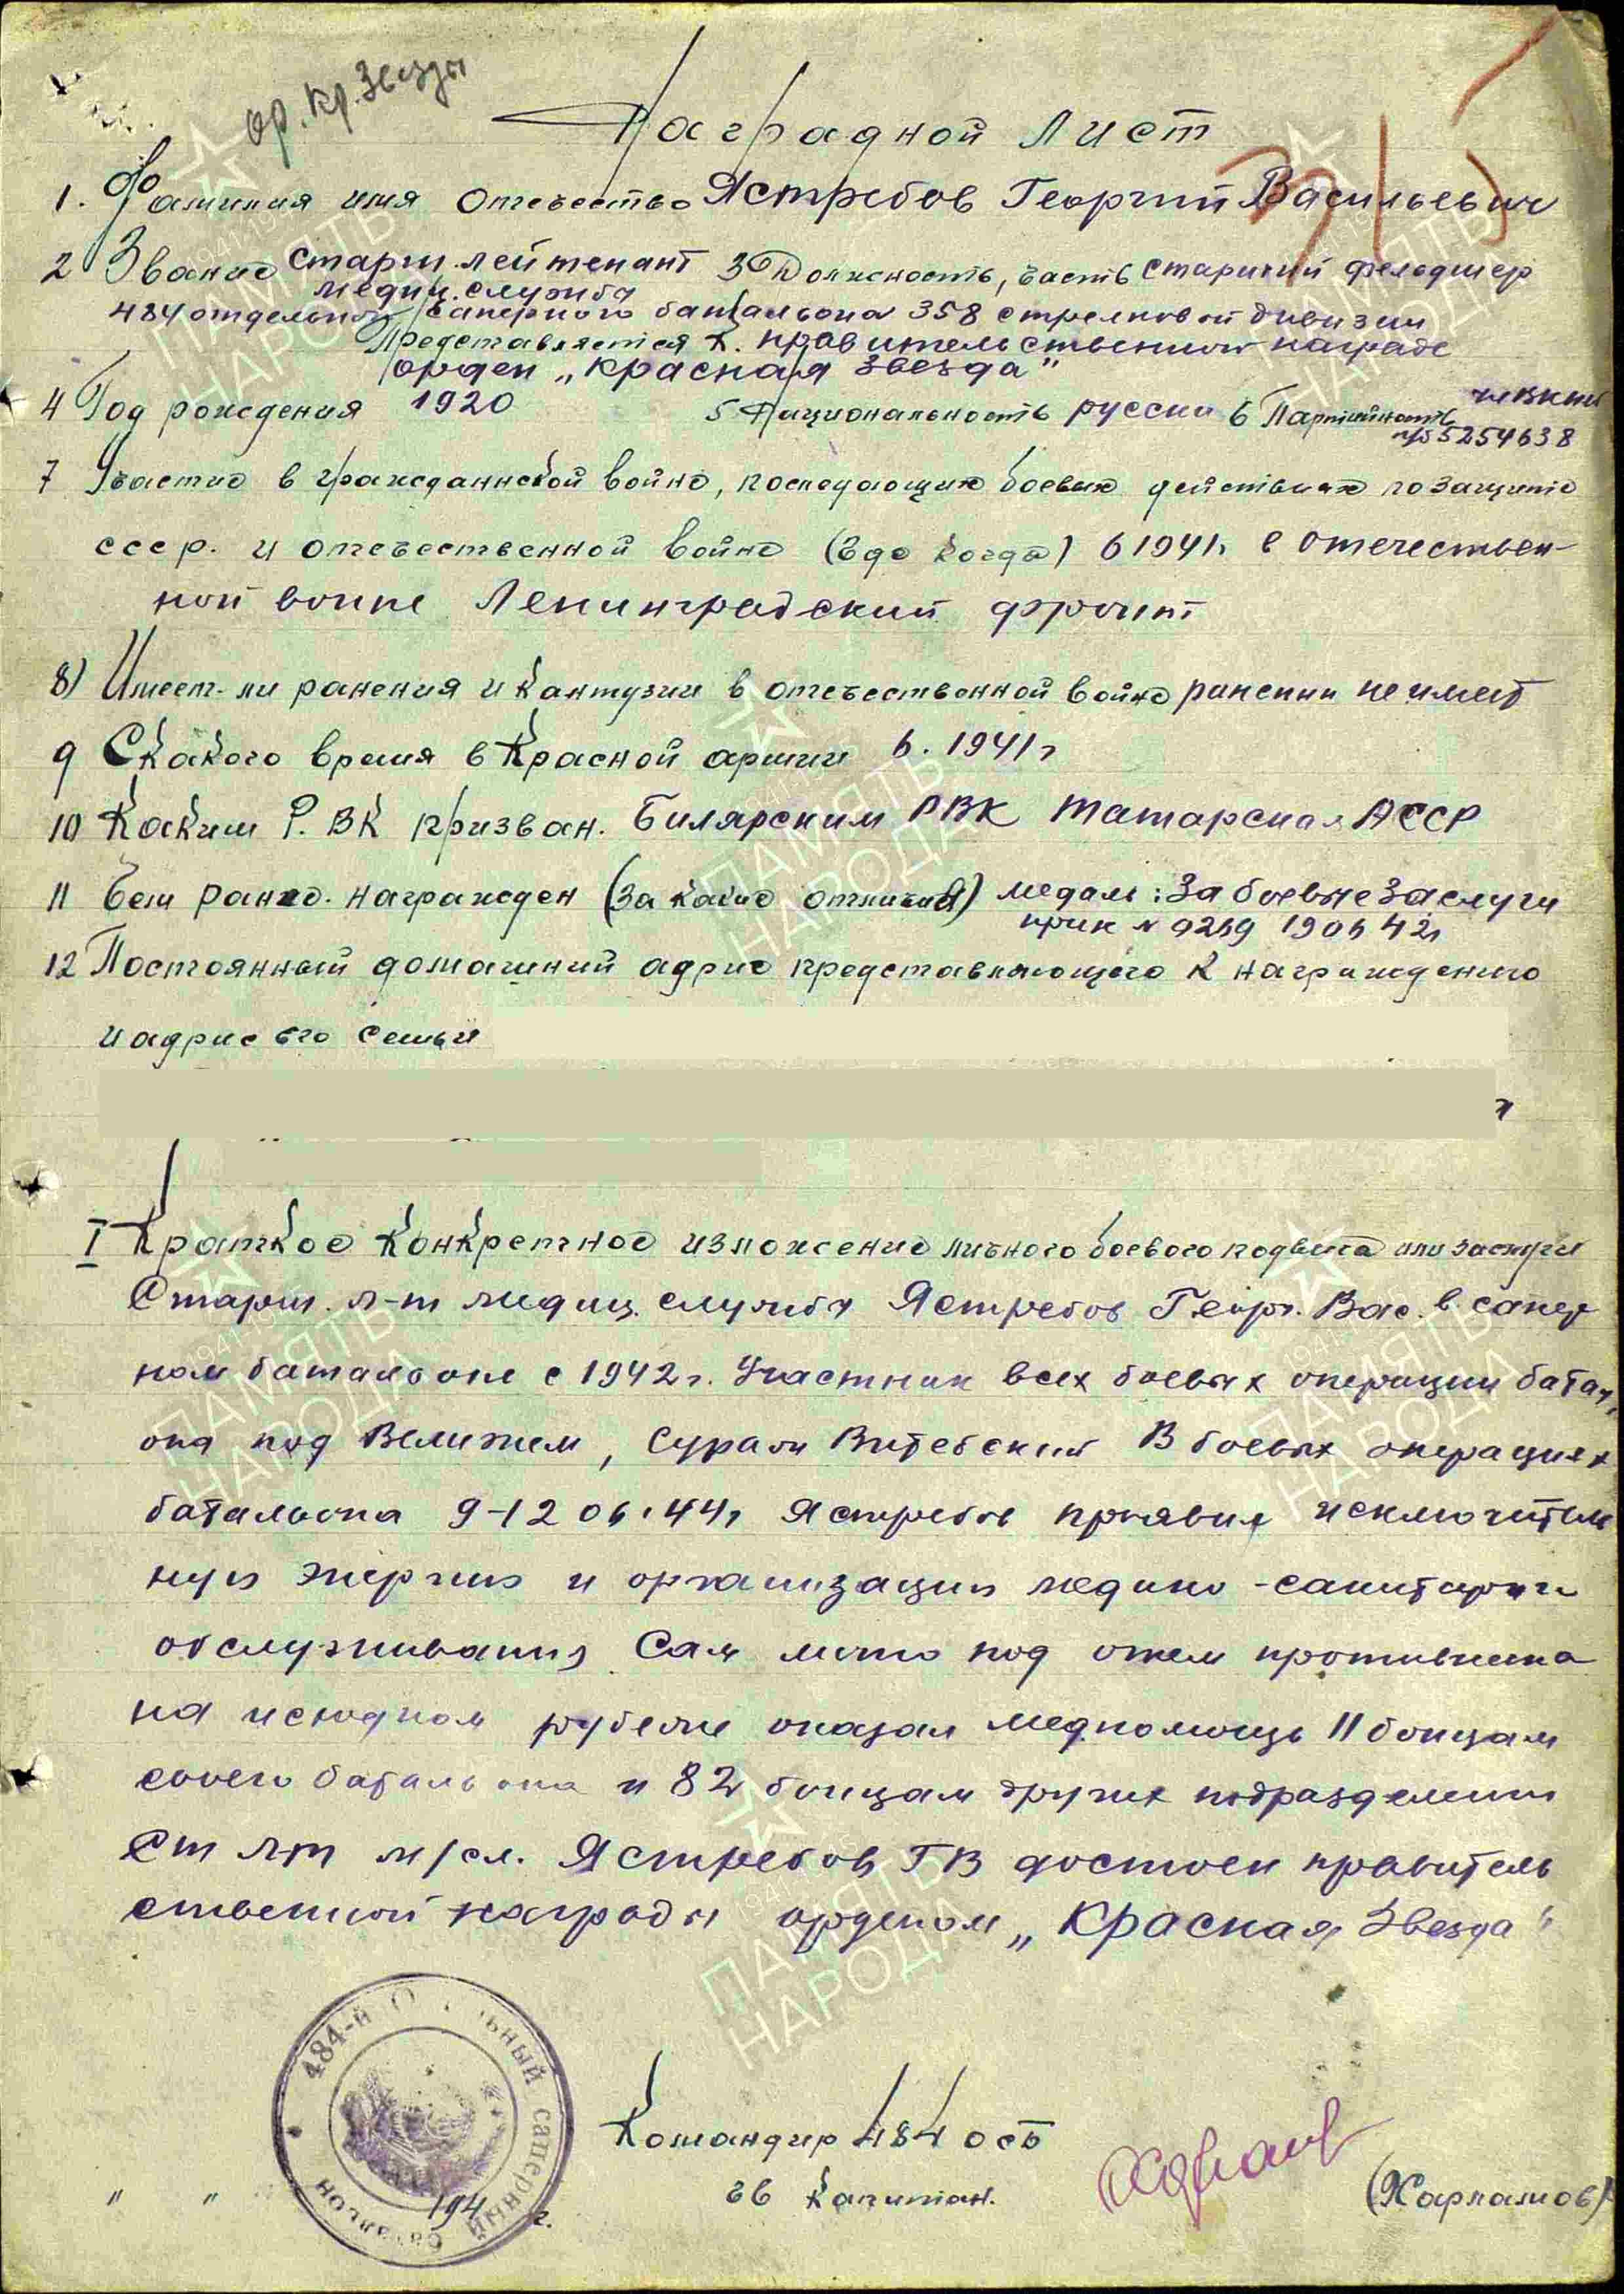 ор. Кр. Звезды
Наградной лист
1. Фамилия имя отчество Ястребов Георгий Васильевич
2 Звание старш. лейтенант 3 Должность, часть старший фельдшер
медиц. службы
484 отдельного саперного батальона 358 стрелковой дивизии
Представляется к. правительственной награде
орден „Красная звезда"
4 Год рождения 1920 5 Национальность русский 6 Партийность чл ВКПб
п/б 5254638
7 Участие в гражданской войне, последующих боевых действиях по защите
СССР. и отечественной войне (где когда) в 1941г. в отечествен-
ной войне Ленинградский фронт
8) Имеет-ли ранения и кантузии в отечественной войне ранении не имеет
9 С какого время в Красной армии в. 1941г
10 Каким Р. ВК призван. Билярским РВК Татарская АССР
11 Чем ранее. награжден (за какие отличия) медаль: За боевые заслуги
прик №
12 Постоянный домашний адрис представляющего к награждению
и адрис его семьи
I Краткое конкретное изложение личного боевого подвига или заслуги
Старш. л-т медиц. службы Ястребов Георг. Вас. в. сапер
ном батальоне с 1942г. Участник всех боевых операции баталь
она под Велижем, Сураж Витебский В боевых операциях
батальона 9-12 01.44г Ястребов проявил исключитель
ную энергию и организации медико-санитарного
обслуживания. Сам лично под огнем противника
на исходном рубеже оказал медпомощь 11 бойцам
своего батальона и 82 бойцам других подразделении
Ст л-т м/сл. Ястребов ГВ достоен правитель
ственной награды орденом „Красная Звезда"
484-й Отдельный саперный батальон
Командир 484 осб
гв капитан.
(Харламов)
" " 194 г.
ПАМЯТЬ
НАРОДА